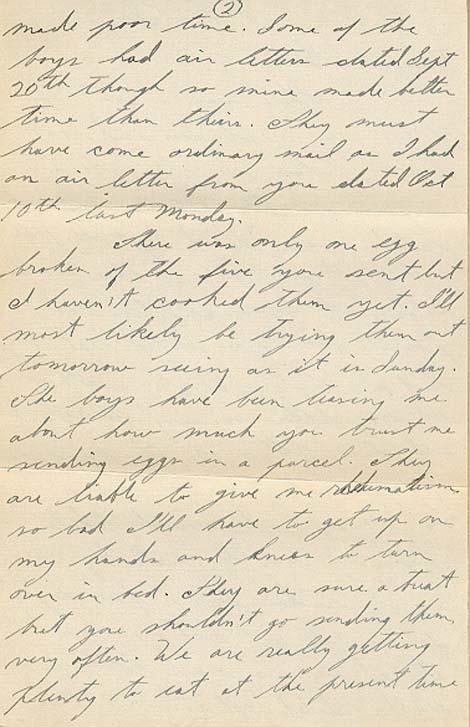 2
made poor time. Some of the
boys had air letters dated Sept
20th though so mine made better
time than theirs. They must
have come ordinary mail as I had
an air letter from you dated Oct
10th last Monday.
There was only one egg
broken of the five you sent but
I haven't cooked them yet. I'll
most likely be trying them out
tomorrow seeing as it is Sunday.
The boys have been teasing me
about how much you trust me
sending eggs in a parcel. They
are liable to give me rheumatism
so bad I'll have to get up on
my hands and knees to turn
over in bed. They are sure a treat
but you shouldn't go sending them
very often. We are really getting
plenty to eat at the present time